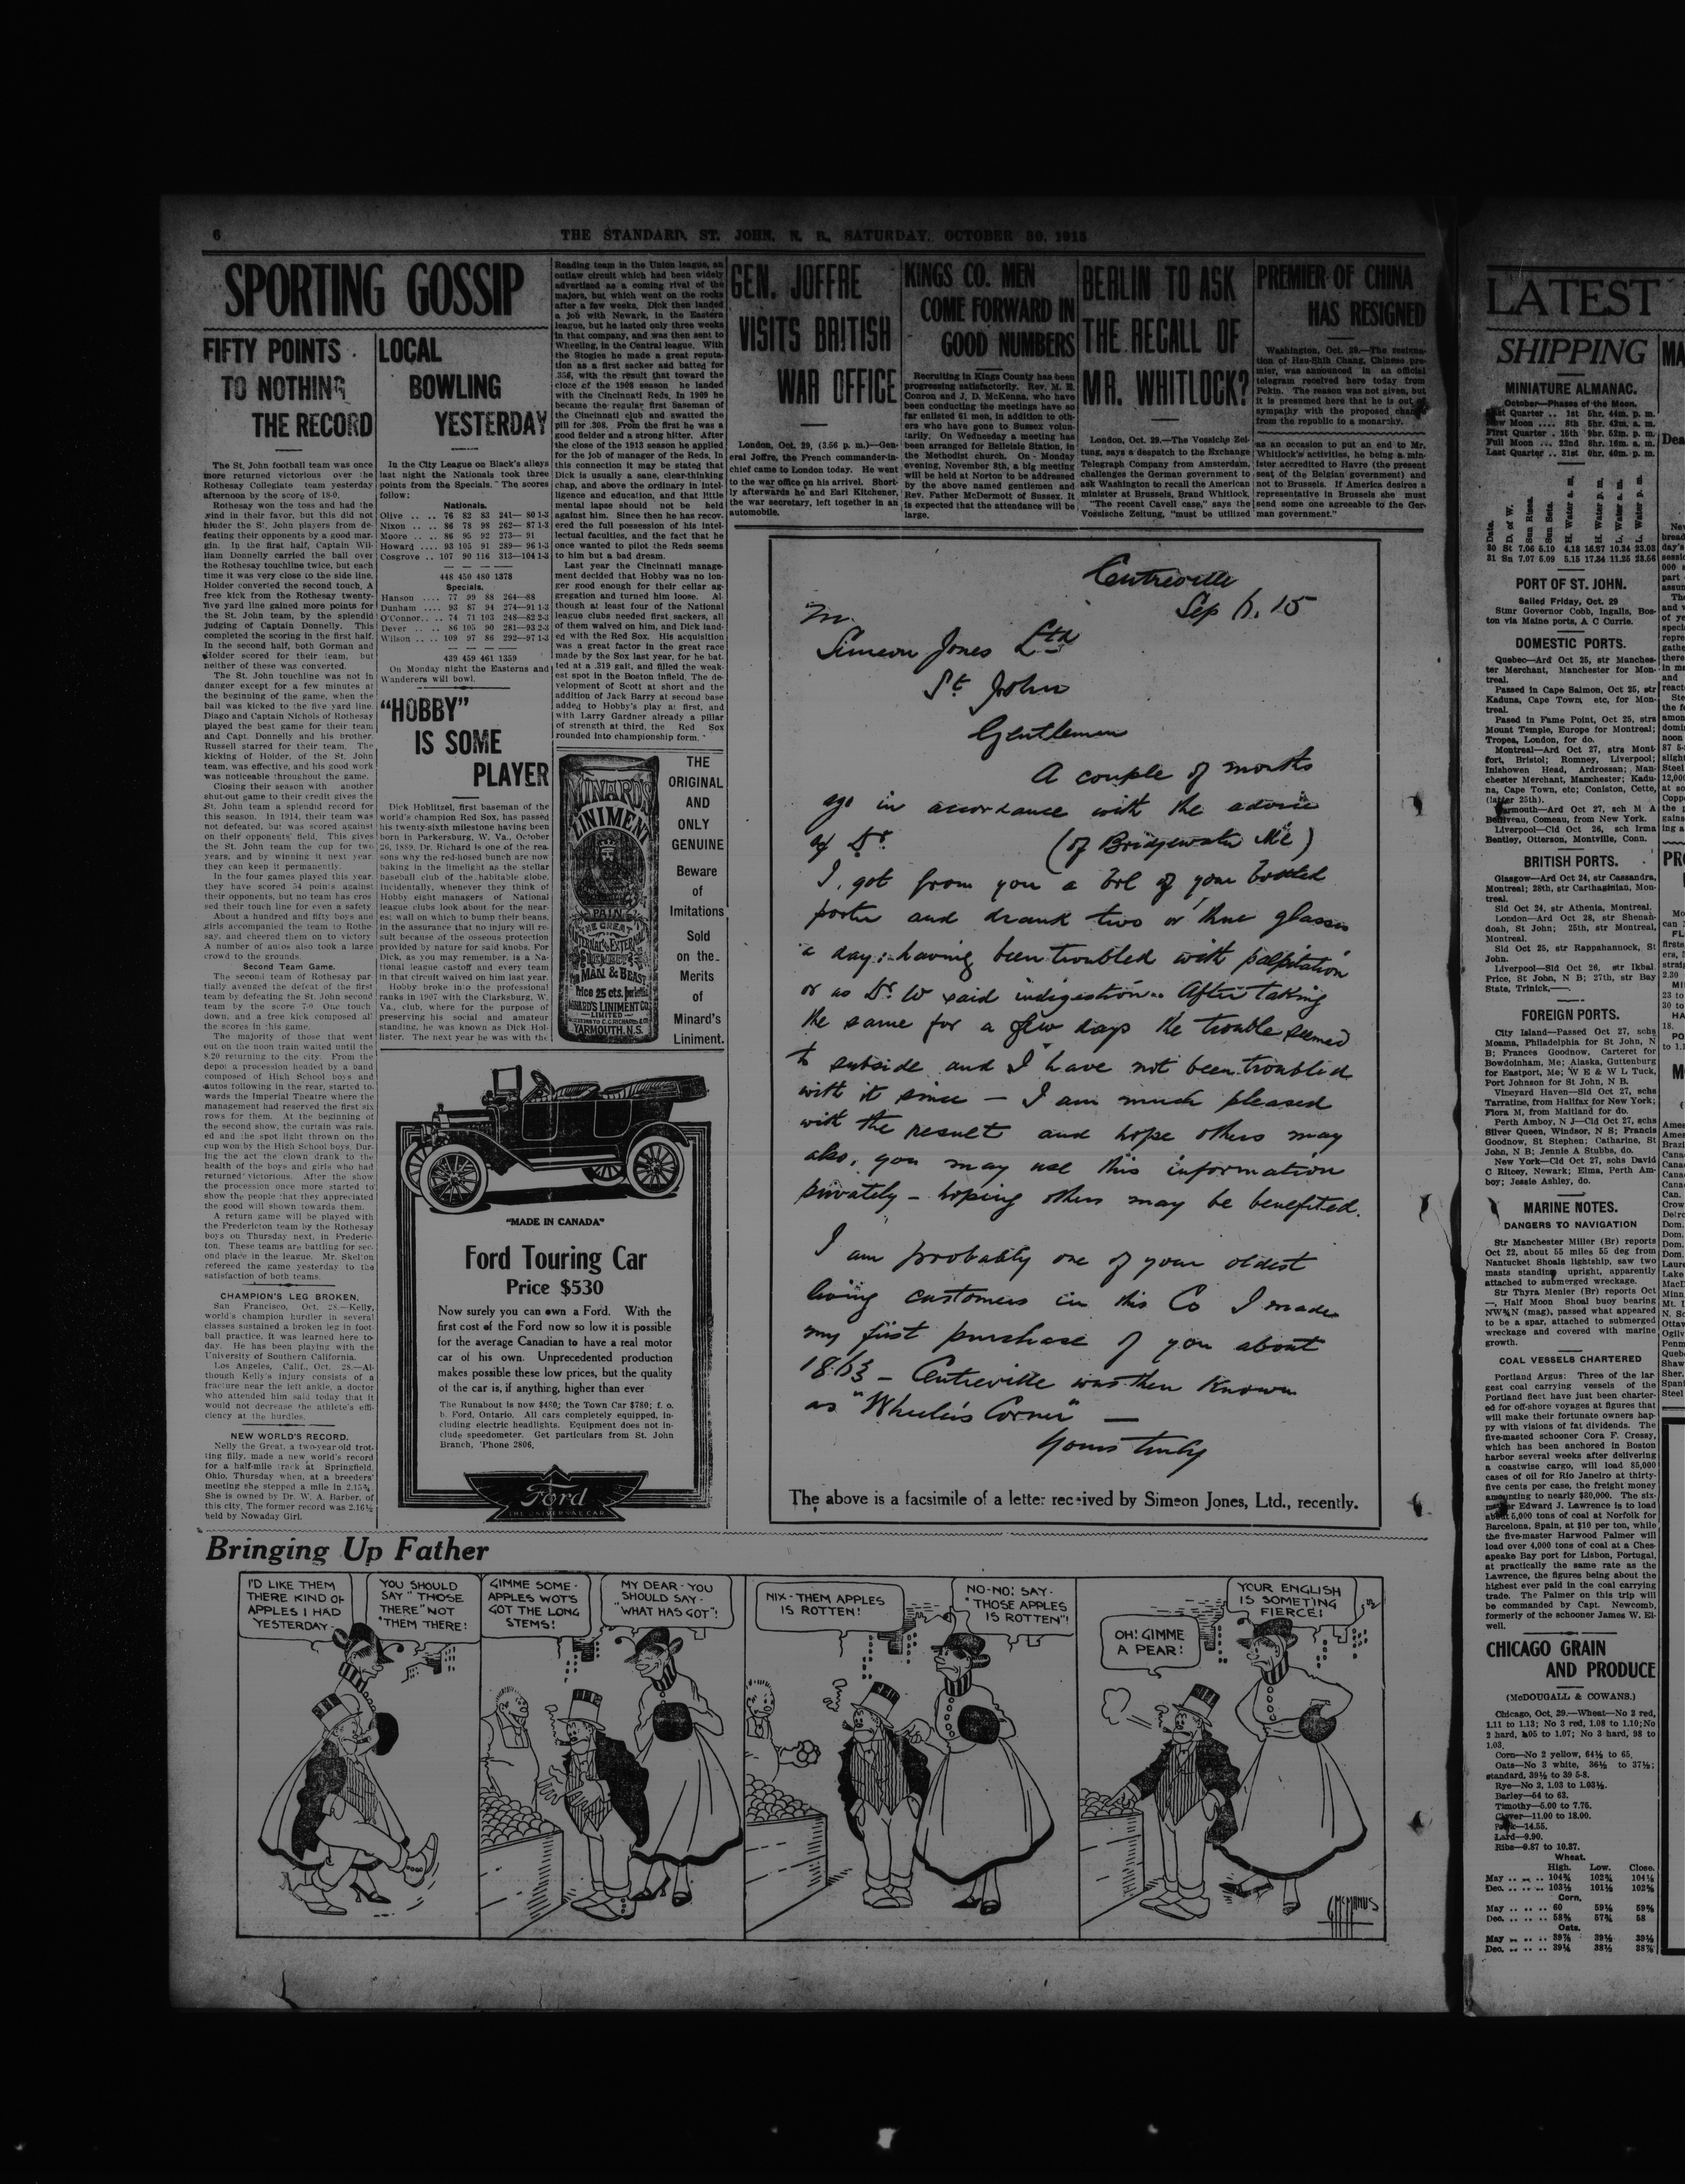 6
THE STANDARD, ST. JOHN, N. B., SATURDAY, OCTOBER 30, 1915
SPORTING GOSSIP
FIFTY POINTS
TO NOTHING
THE RECORD
The St. John football team was once
more returned victorious over the
Rothesay Collegiate team yesterday
afternoon by the score of 18-0.
Rothesay won the toss and had the
wind in their favor, but this did not
hinder the St. John players from de-
feating their opponents by a good mar-
gin. In the first half, Captain Wil-
liam Donnelly carried the ball over
the Rothesay touchline twice, but each
time it was very close to the side line.
Holder converted the second touch. A
free kick from the Rothesay twenty-
five yard line gained more points for
the St. John team, by the splendid
judging of Captain Donnelly. This
completed the scoring in the first half.
In the second half, both Gorman and
Holder scored for their team, but
neither of these was converted.
The St. John touchline was not in
danger except for a few minutes at
the beginning of the game, when the
ball was kicked to the five yard line.
Diago and Captain Nichols of Rothesay
played the best game for their team
and Capt. Donnelly and his brother.
Russell starred for their team. The
kicking of Holder, of the St. John
team, was effective, and his good work
was noticeable throughout the game.
Closing their season with another
shut-out game to their credit gives the
St. John team a splendid record for
this season. In 1914, their team was
not defeated, but was scored against
on their opponents' field. This gives
the St. John team the cup for two
years, and by winning it next year
they can keep it permanently.
In the four games played this year,
they have scored 54 points against
their opponents, but no team has cros
sed their touch line for even a safety
About a hundred and fifty boys and
girls accompanied the team to Rothe-
say, and cheered them on to victory
A number of autos also took a large
crowd to the grounds.
Second Team Game.
The second team of Rothesay par-
tially avenged the defeat of the first
team by defeating the St. John second
team by the score 7-0 One touch
down, and a free kick composed all
the scores in this game.
The majority of those that went
out on the noon train waited until the
8.20 returning to the city. From the
depot a procession headed by a band
composed of High School boys and
autos following in the rear, started to-
wards the Imperial Theatre where the
management had reserved the first six
rows for them. At the beginning of
the second show, the curtain was rais-
ed and the spot light thrown on the
cup won by the High School boys. Dur-
ing the act the clown drank to the
health of the boys and girls who had
returned victorious. After the show
the procession once more started to
show the people that they appreciated
the good will shown towards them.
A return game will be played with
the Fredericton team by the Rothesay
boys on Thursday next, in Frederic
ton. These teams are battling for sec-
ond place in the league. Mr. Skelton
refereed the game yesterday to the
satisfaction of both teams.
CHAMPION'S LEG BROKEN.
San Francisco, Oct. 28.—Kelly,
world's champion hurdler in several
classes sustained a broken leg in foot-
ball practice, it was learned here to-
day. He has been playing with the
University of Southern California.
Los Angeles, Calif., Oct. 28.—Al-
though Kelly's injury consists of a
fracture near the left ankle, a doctor
who attended him said today that it
would not decrease the athlete's effi-
ciency at the hurdles.
NEW WORLD'S RECORD.
Nelly the Great, a two-year-old trot-
ting filly, made a new world's record
for a half-mile track at Springfield,
Ohio, Thursday when, at a breeders'
meeting she stepped a mile in 2.15¾.
She is owned by Dr. W. A. Barber, of
this city. The former record was 2.16½
held by Nowaday Girl.
LOCAL
BOWLING
YESTERDAY
In the City League on Black's alleys
last night the Nationals took three
points from the Specials. The scores
follow:
Nationals.
Olive .. .. 76 82 83 241— 80 1-3
Nixon .. .. 86 78 98 262— 87 1-3
Moore .. .. 86 95 92 273— 91
Howard .... 93 105 91 289— 96 1-3
Cosgrove .. 107 90 116 313—104 1-3
448 450 480 1378
Specials.
Hanson .... 77 99 88 264—88
Dunham .... 93 87 94 274—91 1-3
O'Connor.. .. 74 71 103 248—82 2-3
Dever .. .. 86 105 90 281—93 2-3
Wilson .. .. 109 97 86 292—97 1-3
439 459 461 1359
On Monday night the Easterns and
Wanderers will bowl.
"HOBBY"
IS SOME
PLAYER
Dick Hoblitzel, first baseman of the
world's champion Red Sox, has passed
his twenty-sixth milestone having been
born in Parkersburg, W. Va., October
26, 1889. Dr. Richard is one of the rea-
sons why the red-hosed bunch are now
baking in the limelight as the stellar
baseball club of the habitable globe.
Incidentally, whenever they think of
Hobby eight managers of National
league clubs look about for the near-
est wall on which to bump their beans,
in the assurance that no injury will re-
sult because of the osseous protection
provided by nature for said knobs. For
Dick, as you may remember, is a Na-
tional league castoff and every team
in that circuit waived on him last year.
Hobby broke into the professional
ranks in 1907 with the Clarksburg, W.
Va., club, where for the purpose of
preserving his social and amateur
standing, he was known as Dick Hol-
lister. The next year he was with the
Reading team in the Union league, an
outlaw circuit which had been widely
advertised as a coming rival of the
majors, but which went on the rocks
after a few weeks. Dick then landed
a job with Newark, in the Eastern
league, but he lasted only three weeks
in that company, and was then sent to
Wheeling, in the Central league. With
the Stogies he made a great reputa-
tion as a first sacker and batted for
.356, with the result that toward the
close of the 1908 season he landed
with the Cincinnati Reds. In 1909 he
became the regular first baseman of
the Cincinnati club and swatted the
pill for .308. From the first he was a
good fielder and a strong hitter. After
the close of the 1913 season he applied
for the job of manager of the Reds. In
this connection it may be stated that
Dick is usually a sane, clear-thinking
chap, and above the ordinary in intel-
ligence and education, and that little
mental lapse should not be held
against him. Since then he has recov-
ered the full possession of his intel-
lectual faculties, and the fact that he
once wanted to pilot the Reds seems
to him but a bad dream.
Last year the Cincinnati manage-
ment decided that Hobby was no lon-
ger good enough for their cellar ag-
gregation and turned him loose. Al-
though at least four of the National
league clubs needed first sackers, all
of them waived on him, and Dick land-
ed with the Red Sox. His acquisition
was a great factor in the great race
made by the Sox last year, for he bat-
ted at a .319 gait, and filled the weak-
est spot in the Boston infield. The de-
velopment of Scott at short and the
addition of Jack Barry at second base
added to Hobby's play at first, and
with Larry Gardner already a pillar
of strength at third, the Red Sox
rounded into championship form.
MINARD'S
LINIMENT
PAIN
THE GREAT
INTERNAL & EXTERNAL
REMEDY
FOR MAN & BEAST
Price 25 cts. per bottle
MINARD'S LINIMENT CO.
LIMITED
YARMOUTH, N.S.
THE
ORIGINAL
AND
ONLY
GENUINE
Beware
of
Imitations
Sold
on the
Merits
of
Minard's
Liniment.
"MADE IN CANADA"
Ford Touring Car
Price $530
Now surely you can own a Ford. With the
first cost of the Ford now so low it is possible
for the average Canadian to have a real motor
car of his own. Unprecedented production
makes possible these low prices, but the quality
of the car is, if anything, higher than ever
The Runabout is now $480; the Town Car $780; f. o.
b. Ford, Ontario. All cars completely equipped, in-
cluding electric headlights. Equipment does not in-
clude speedometer. Get particulars from St. John
Branch, 'Phone 2806.
Ford
THE UNIVERSAL CAR
GEN. JOFFRE
VISITS BRITISH
WAR OFFICE
London, Oct. 29, (3.56 p. m.)—Gen-
eral Joffre, the French commander-in-
chief came to London today. He went
to the war office on his arrival. Short-
ly afterwards he and Earl Kitchener,
the war secretary, left together in an
automobile.
KINGS CO. MEN
COME FORWARD IN
GOOD NUMBERS
Recruiting in Kings County has been
progressing satisfactorily. Rev. M. E.
Conron and J. D. McKenna, who have
been conducting the meetings have so
far enlisted 61 men, in addition to oth-
ers who have gone to Sussex volun-
tarily. On Wednesday a meeting has
been arranged for Belleisle Station, in
the Methodist church. On Monday
evening, November 8th, a big meeting
will be held at Norton to be addressed
by the above named gentlemen and
Rev. Father McDermott of Sussex. It
is expected that the attendance will be
large.
BERLIN TO ASK
THE RECALL OF
MR. WHITLOCK?
London, Oct. 29.—The Vossiche Zei-
tung, says a despatch to the Exchange
Telegraph Company from Amsterdam,
challenges the German government to
ask Washington to recall the American
minister at Brussels, Brand Whitlock.
"The recent Cavell case," says the
Vossische Zeitung, "must be utilized
as an occasion to put an end to Mr.
Whitlock's activities, he being a min-
ister accredited to Havre (the present
seat of the Belgian government) and
not to Brussels. If America desires a
representative in Brussels she must
send some one agreeable to the Ger-
man government."
PREMIER OF CHINA
HAS RESIGNED
Washington, Oct. 29.—The resigna-
tion of Hsu-Shih Chang, Chinese pre-
mier, was announced in an official
telegram received here today from
Pekin. The reason was not given, but
it is presumed here that he is out of
sympathy with the proposed change
from the republic to a monarchy.
Centreville
Sep 6, 15
M.
Simeon Jones Ltd
St John
Gentlemen
A couple of months
ago in accordance with the advice
of Dr. (of Bridgewater Me)
I got from you a brl of your bottled
porter and drank two or three glasses
a day: having been troubled with palpitation
or as Dr. W said indigestion. After taking
the same for a few days the trouble seemed
to subside and I have not been troubled
with it since — I am much pleased
with the result and hope others may
also, you may use this information
privately — hoping others may be benefited.
I am probably one of your oldest
living customers in this Co I made
my first purchase of you about
1863 — Centreville was then known
as "Wheeler's Corner" —
Yours truly
The above is a facsimile of a letter received by Simeon Jones, Ltd., recently.
Bringing Up Father
I'D LIKE THEM
THERE KIND OF
APPLES I HAD
YESTERDAY-
YOU SHOULD
SAY "THOSE
THERE" NOT
"THEM THERE!
GIMME SOME-
APPLES WOT'S
GOT THE LONG
STEMS!
MY DEAR-YOU
SHOULD SAY-
"WHAT HAS GOT"!
NIX-THEM APPLES
IS ROTTEN!
NO-NO! SAY-
"THOSE APPLES
IS ROTTEN"!
OH! GIMME
A PEAR!
YOUR ENGLISH
IS SOMETING
FIERCE!
G. McMANUS
LATEST
SHIPPING
MINIATURE ALMANAC.
October—Phases of the Moon.
Last Quarter .. 1st 5hr. 44m. p. m.
New Moon .... 8th 5hr. 42m. p. m.
First Quarter . 15th 9hr. 52m. p. m.
Full Moon ... 22nd 8hr. 16m. a. m.
Last Quarter .. 31st 0hr. 40m. p. m.
Date.
D. of W.
Sun Rises.
Sun Sets.
H. Water a. m.
H. Water p. m.
L. Water a. m.
L. Water p. m.
30 St 7.06 5.10 4.18 16.27 10.34 23.03
31 Sn 7.07 5.09 5.15 17.34 11.25 23.56
PORT OF ST. JOHN.
Sailed Friday, Oct. 29
Stmr Governor Cobb, Ingalls, Bos-
ton via Maine ports, A C Currie.
DOMESTIC PORTS.
Quebec—Ard Oct 25, str Manches-
ter Merchant, Manchester for Mon-
treal.
Passed in Cape Salmon, Oct 25, str
Kaduna, Cape Town, etc, for Mon-
treal.
Pased in Fame Point, Oct 25, strs
Mount Temple, Europe for Montreal;
Tropea, London, for do.
Montreal—Ard Oct 27, strs Mont-
fort, Bristol; Romney, Liverpool;
Inishowen Head, Ardrossan; Man-
chester Merchant, Manchester; Kadu-
na, Cape Town, etc; Coniston, Cette,
(latter 25th).
Yarmouth—Ard Oct 27, sch M A
Belliveau, Comeau, from New York.
Liverpool—Cld Oct 26, sch Irma
Bentley, Otterson, Montville, Conn.
BRITISH PORTS.
Glasgow—Ard Oct 24, str Cassandra,
Montreal; 28th, str Carthaginian, Mon-
treal.
Sld Oct 24, str Athenia, Montreal.
London—Ard Oct 28, str Shenan-
doah, St John; 25th, str Montreal,
Montreal.
Sld Oct 25, str Rappahannock, St
John.
Liverpool—Sld Oct 26, str Ikbal
Price, St John, N B; 27th, str Bay
State, Trinick,—.
FOREIGN PORTS.
City Island—Passed Oct 27, schs
Moama, Philadelphia for St John, N
B; Frances Goodnow, Carteret for
Bowdoinham, Me; Alaska, Guttenburg
for Eastport, Me; W E & W L Tuck,
Port Johnson for St John, N B.
Vineyard Haven—Sld Oct 27, schs
Tarratine, from Halifax for New York;
Flora M, from Maitland for do.
Perth Amboy, N J—Cld Oct 27, schs
Silver Queen, Windsor, N S; Francis
Goodnow, St Stephen; Catharine, St
John, N B; Jennie A Stubbs, do.
New York—Cld Oct 27, schs David
C Ritcey, Newark; Elma, Perth Am-
boy; Jessie Ashley, do.
MARINE NOTES.
DANGERS TO NAVIGATION
Str Manchester Miller (Br) reports
Oct 22, about 55 miles 55 deg from
Nantucket Shoals lightship, saw two
masts standing upright, apparently
attached to submerged wreckage.
Str Thyra Menier (Br) reports Oct
—, Half Moon Shoal buoy bearing
NW¾N (mag), passed what appeared
to be a spar, attached to submerged
wreckage and covered with marine
growth.
COAL VESSELS CHARTERED
Portland Argus: Three of the lar-
gest coal carrying vessels of the
Portland fleet have just been charter-
ed for off-shore voyages at figures that
will make their fortunate owners hap-
py with visions of fat dividends. The
five-masted schooner Cora F. Cressy,
which has been anchored in Boston
harbor several weeks after delivering
a coastwise cargo, will load 85,000
cases of oil for Rio Janeiro at thirty-
five cents per case, the freight money
amounting to nearly $30,000. The six-
master Edward J. Lawrence is to load
about 5,000 tons of coal at Norfolk for
Barcelona, Spain, at $10 per ton, while
the five-master Harwood Palmer will
load over 4,000 tons of coal at a Ches-
apeake Bay port for Lisbon, Portugal,
at practically the same rate as the
Lawrence, the figures being about the
highest ever paid in the coal carrying
trade. The Palmer on this trip will
be commanded by Capt. Newcomb,
formerly of the schooner James W. El-
well.
CHICAGO GRAIN
AND PRODUCE
(McDOUGALL & COWANS.)
Chicago, Oct. 29.—Wheat—No 2 red,
1.11 to 1.13; No 3 red, 1.08 to 1.10; No
2 hard, 1.05 to 1.07; No 3 hard, 98 to
1.03.
Corn—No 2 yellow, 64½ to 65.
Oats—No 3 white, 36½ to 37½;
standard, 39½ to 39 5-8.
Rye—No 2, 1.03 to 1.03½.
Barley—54 to 63.
Timothy—5.00 to 7.75.
Clover—11.00 to 18.00.
Pork—14.55.
Lard—9.90.
Ribs—9.87 to 10.37.
Wheat.
High. Low. Close.
May .. .. .. 104¾ 102¾ 104⅛
Dec. .. .. .. 103½ 101½ 102⅝
Corn.
May .. .. .. 60 59½ 59⅝
Dec. .. .. .. 58⅝ 57¾ 58
Oats.
May .. .. .. 39⅞ 39½ 39½
Dec. .. .. .. 39¼ 38½ 38⅞